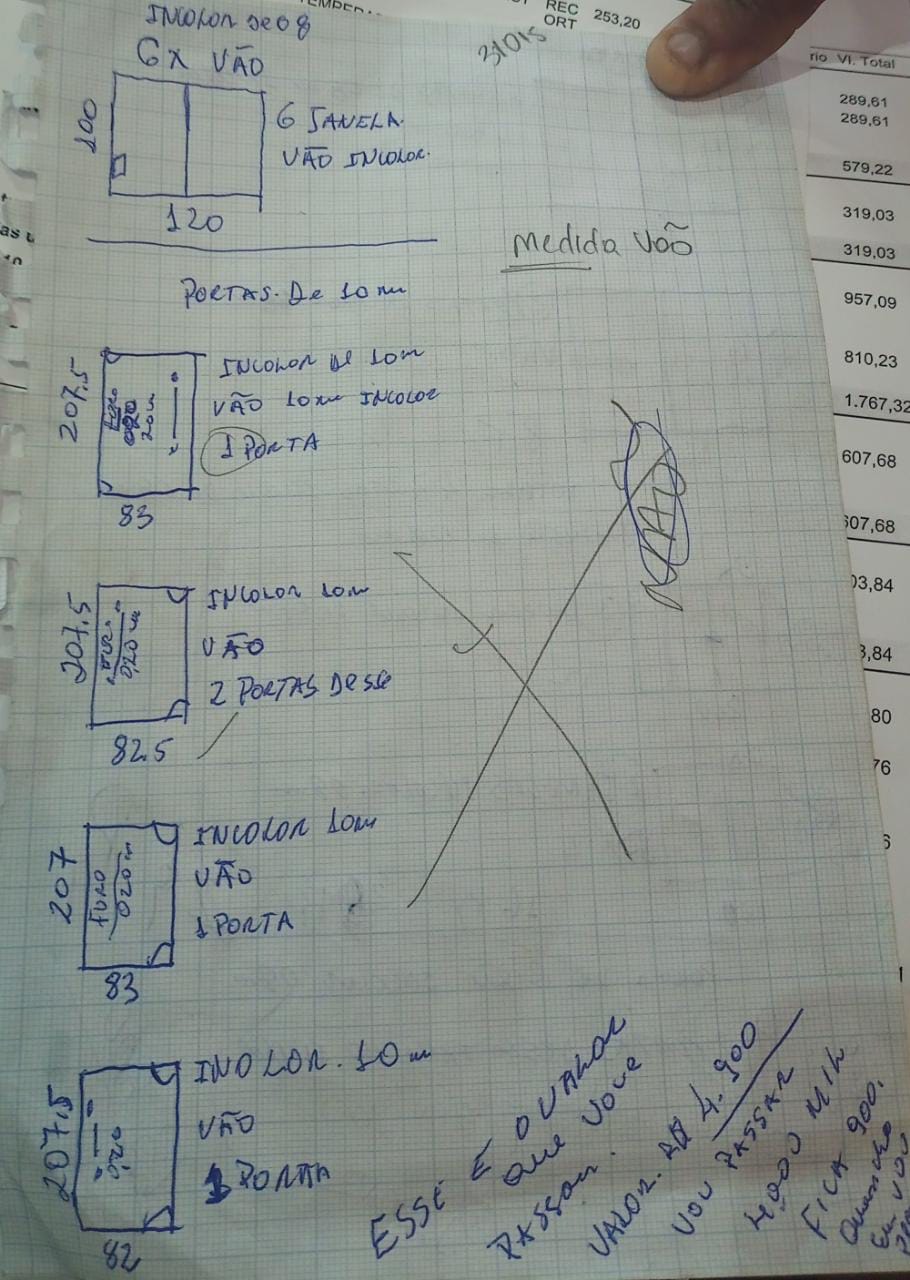 INCOLOR DE 08
6X VÃO
100
120
6 JANELA.
VÃO INCOLOR.
31015
REC
ORT
253,20
Medida Vaõ
PORTAS. De 10 m
207.5
83
FURO
020
20 m
INCOLOR DE 10m
VÃO 10 m INCOLOR
1 PORTA
207.5
82.5
FURO
020 m
INCOLOR 10m
VÃO
2 PORTAS DESSE
207
83
FURO
020 m
INCOLOR 10m
VÃO
1 PORTA
207.5
82
020
INOLOR. 10 m
VÃO
1 PORTA
ESSE E O VALOR
QUE VOCE
PASSOU.
VALOR. R$ 4.900
VOU PASSAR
4000 MIL
FICA 900.
rio Vl. Total
289,61
289,61
579,22
319,03
319,03
957,09
810,23
1.767,32
607,68
607,68
03,84
3,84
80
76
6
1